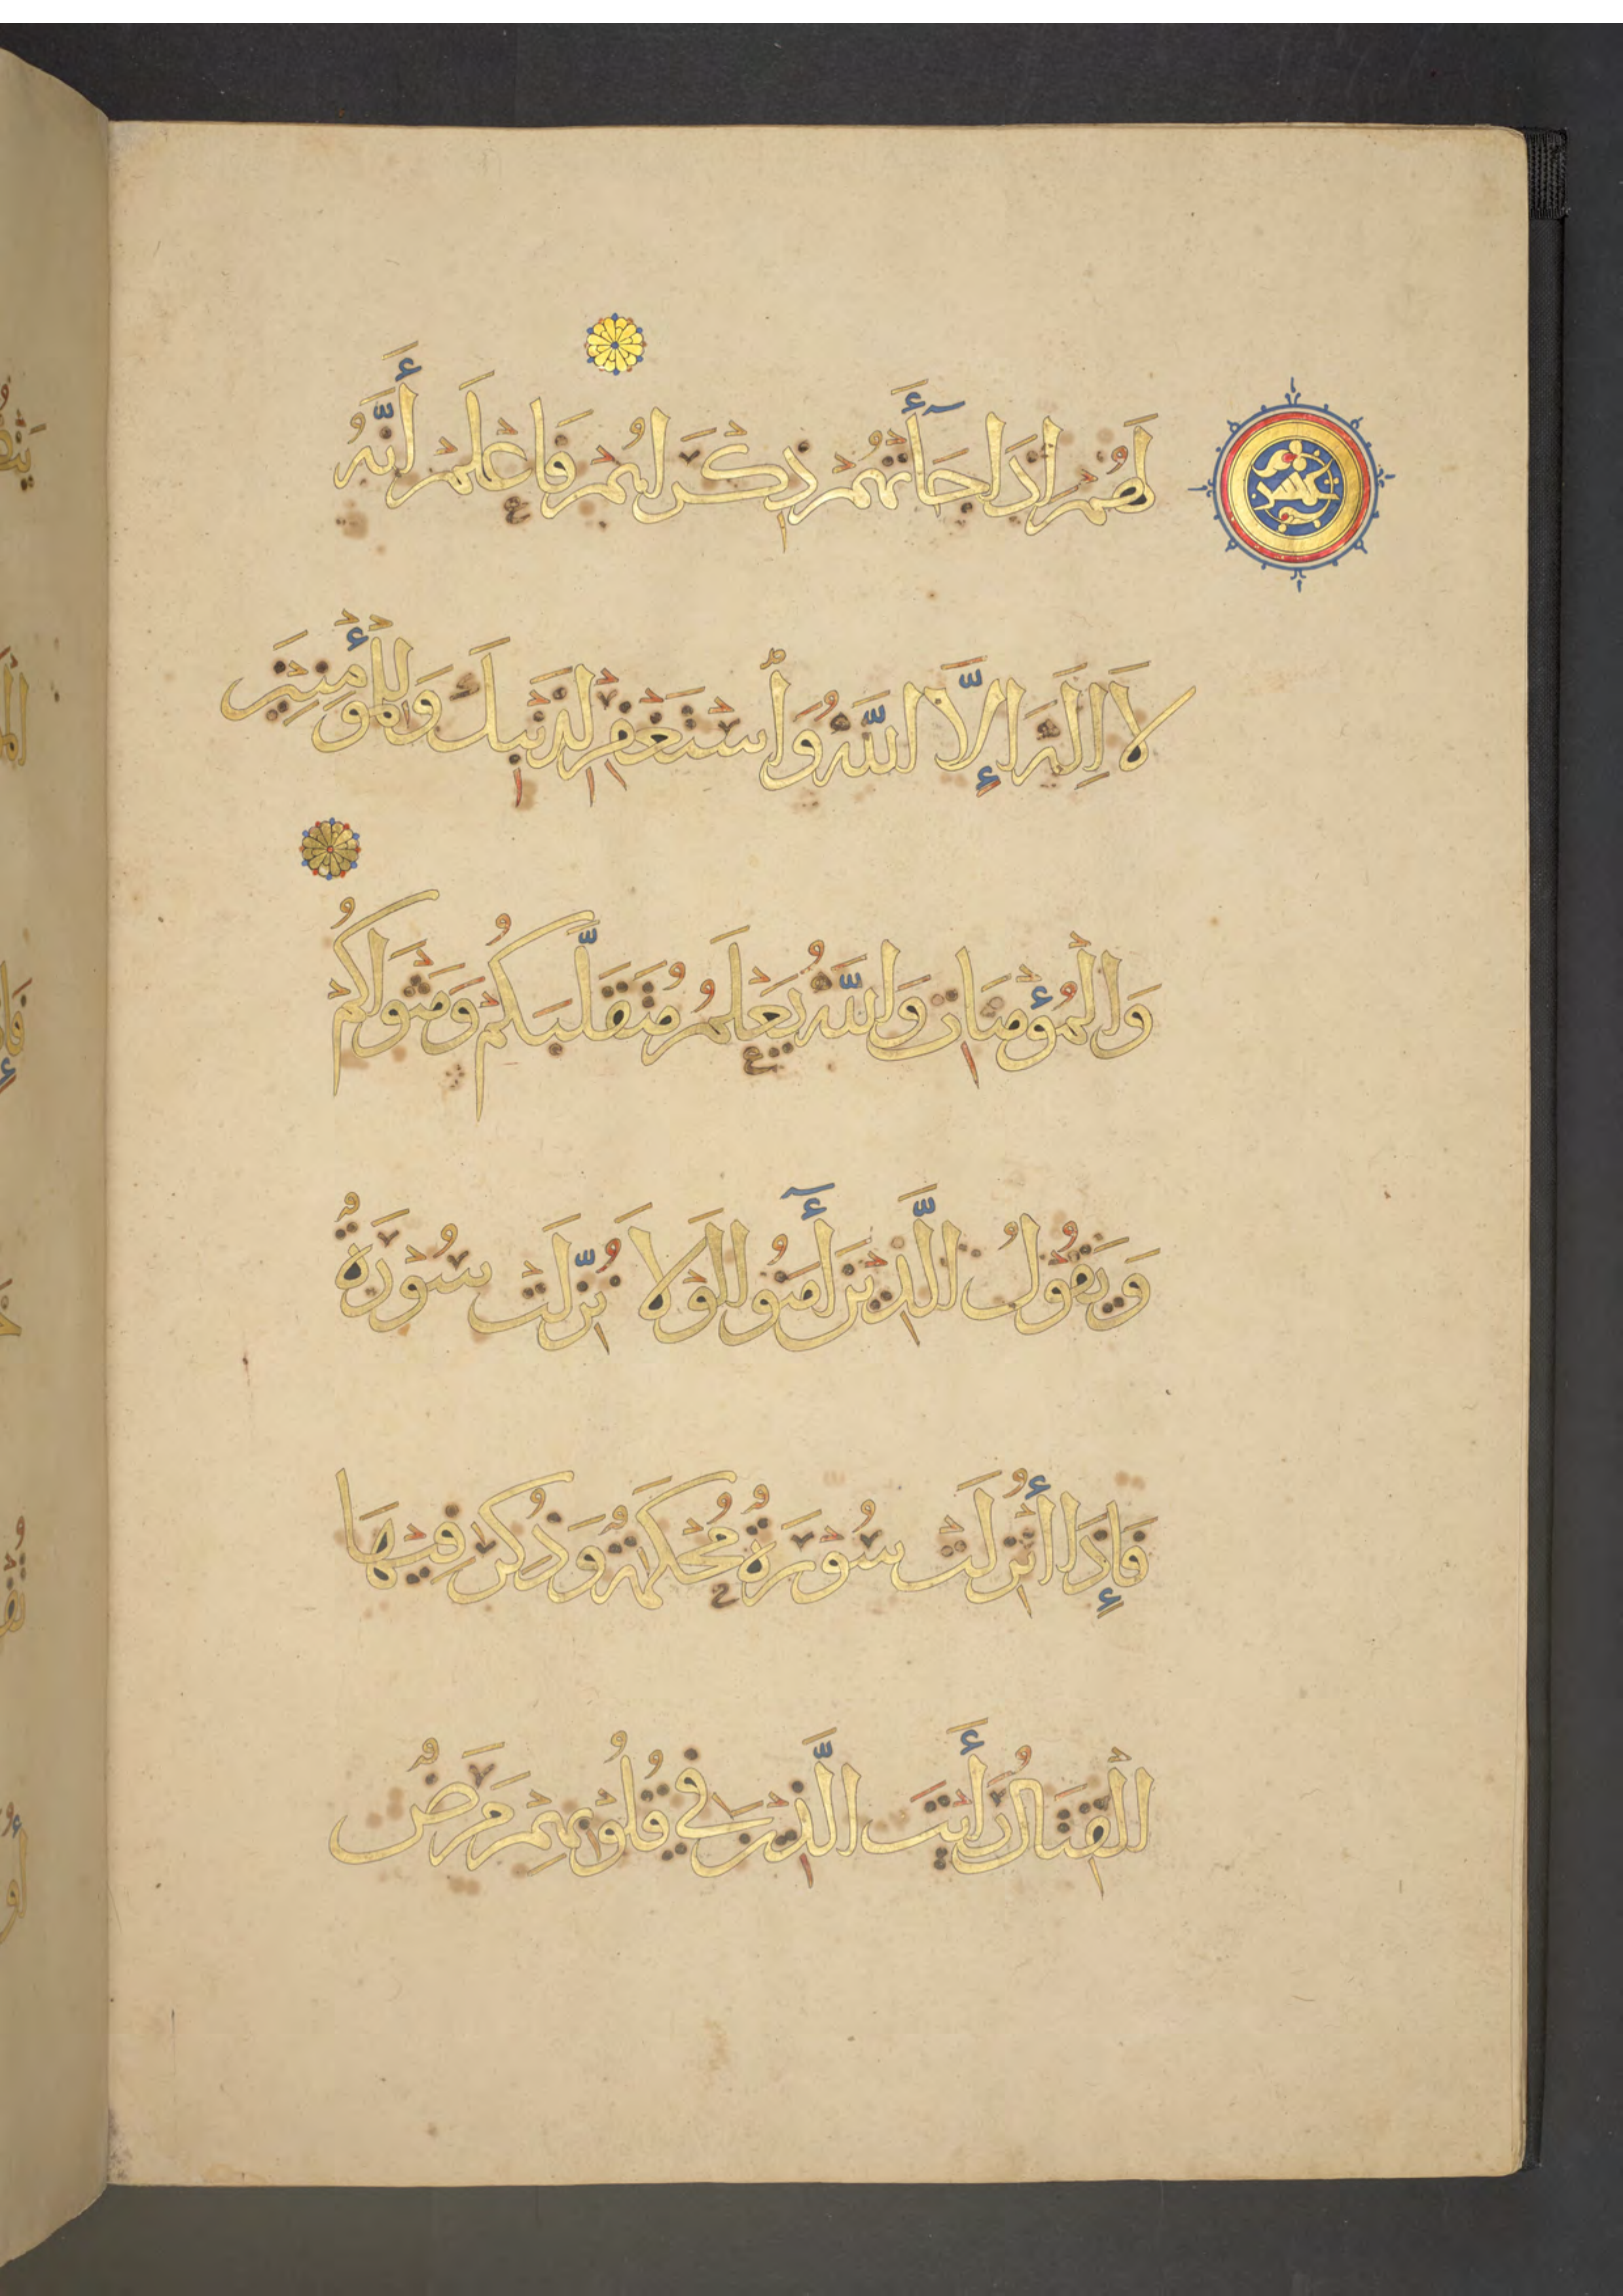 لَهُمْ إِذَا جَآءَتْهُمْ ذِكْرَىٰهُمْ فَاعْلَمْ أَنَّهُ
لَا إِلَهَ إِلَّا اللَّهُ وَاسْتَغْفِرْ لِذَنْبِكَ وَلِلْمُؤْمِنِينَ
وَالْمُؤْمِنَاتِ وَاللَّهُ يَعْلَمُ مُتَقَلَّبَكُمْ وَمَثْوَاكُمْ
وَيَقُولُ الَّذِينَ آمَنُوا لَوْلَا نُزِّلَتْ سُورَةٌ
فَإِذَا أُنْزِلَتْ سُورَةٌ مُحْكَمَةٌ وَذُكِرَ فِيهَا
الْقِتَالُ رَأَيْتَ الَّذِينَ فِي قُلُوبِهِمْ مَرَضٌ